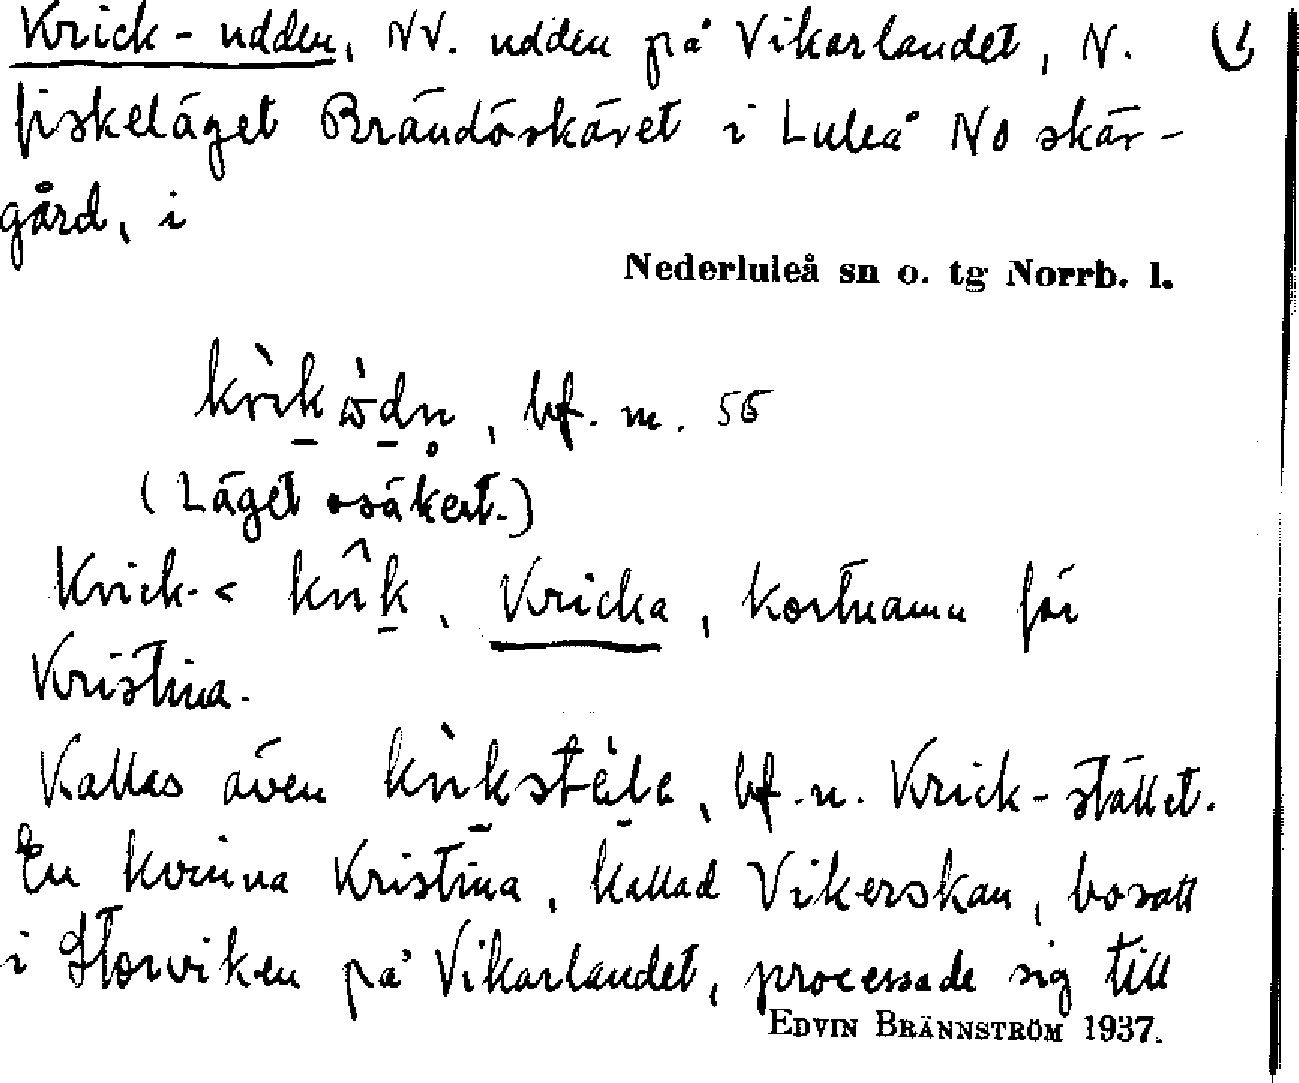 Krick-udden, NV. udden på Vikarlandet, N.
fiskeläget Brändöskäret i Luleå No skär-
gård, i
Nederluleå sn o. tg Norrb. l.
bf. m. 56
(Läget osäkert.)
Krick- < Kricka, kortnamn för
Kristina.
Kallas även bf. n. Krick-stället.
En kvinna Kristina, kallad Vikerskan, bosatt
i Storviken på Vikarlandet, processade sig till
EDVIN BRÄNNSTRÖM 1937.